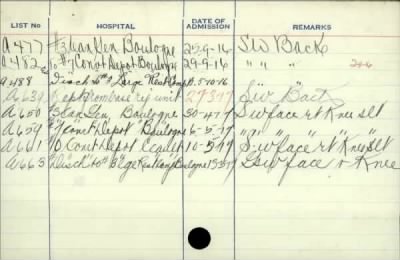 LIST NO HOSPITAL DATE OF ADMISSION REMARKS
A477 #3 Can Gen Boulogne 25-9-16 SW Back
A482 To #7 Conv Depot Boulogne 29-9-16 " " "
A488 Disch to #3 Large Rest Camp B. 5-10-16
A639 rej unit 27347 S.W. Back
A650 #3 Can Gen, Boulogne 30-4-17 S W face rt Knee Slt
A659 #7 Conv Depot Boulogne 6-5-17 " " " " "
A661 10 Conv Depot Ecault 10-5-17 S.W face rt Knee Slt
A663 Disch to B Lge Rest Camp Boulogne G S W face & Knee